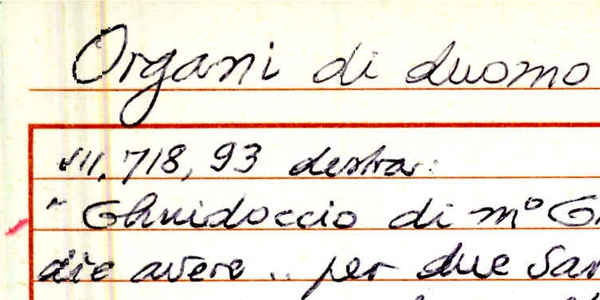 Organi di duomo
VII. 718, 93 destra:
" Ghuidoccio di m°
die avere .. per due